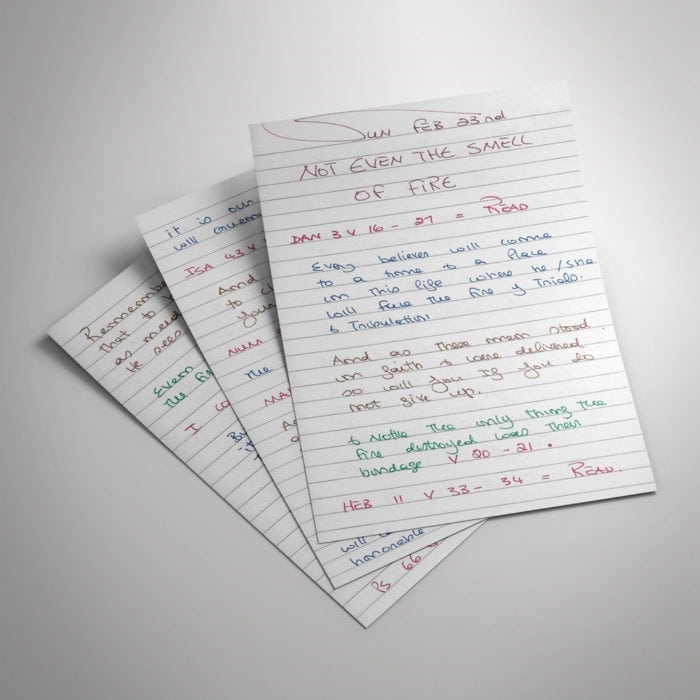 SUN FEB 23nd
NOT EVEN THE SMELL
OF FIRE
DAN 3 V 16 - 27 = READ
Every believer will come
to a time & a Place
in this life where he/she
will face the fire of Trials
& Tribulation
And as these men stood
in faith & were delivered
so will you if you do
not give up.
& Notice the only thing the
fire destroyed was their
bondage V 20 - 21.
HEB 11 V 33 - 34 = READ.
it is our
will
ISA 43 V
And
to
your
NUM =
The
will
honorable
That to
as
Even
The
I
By
PS 66 V